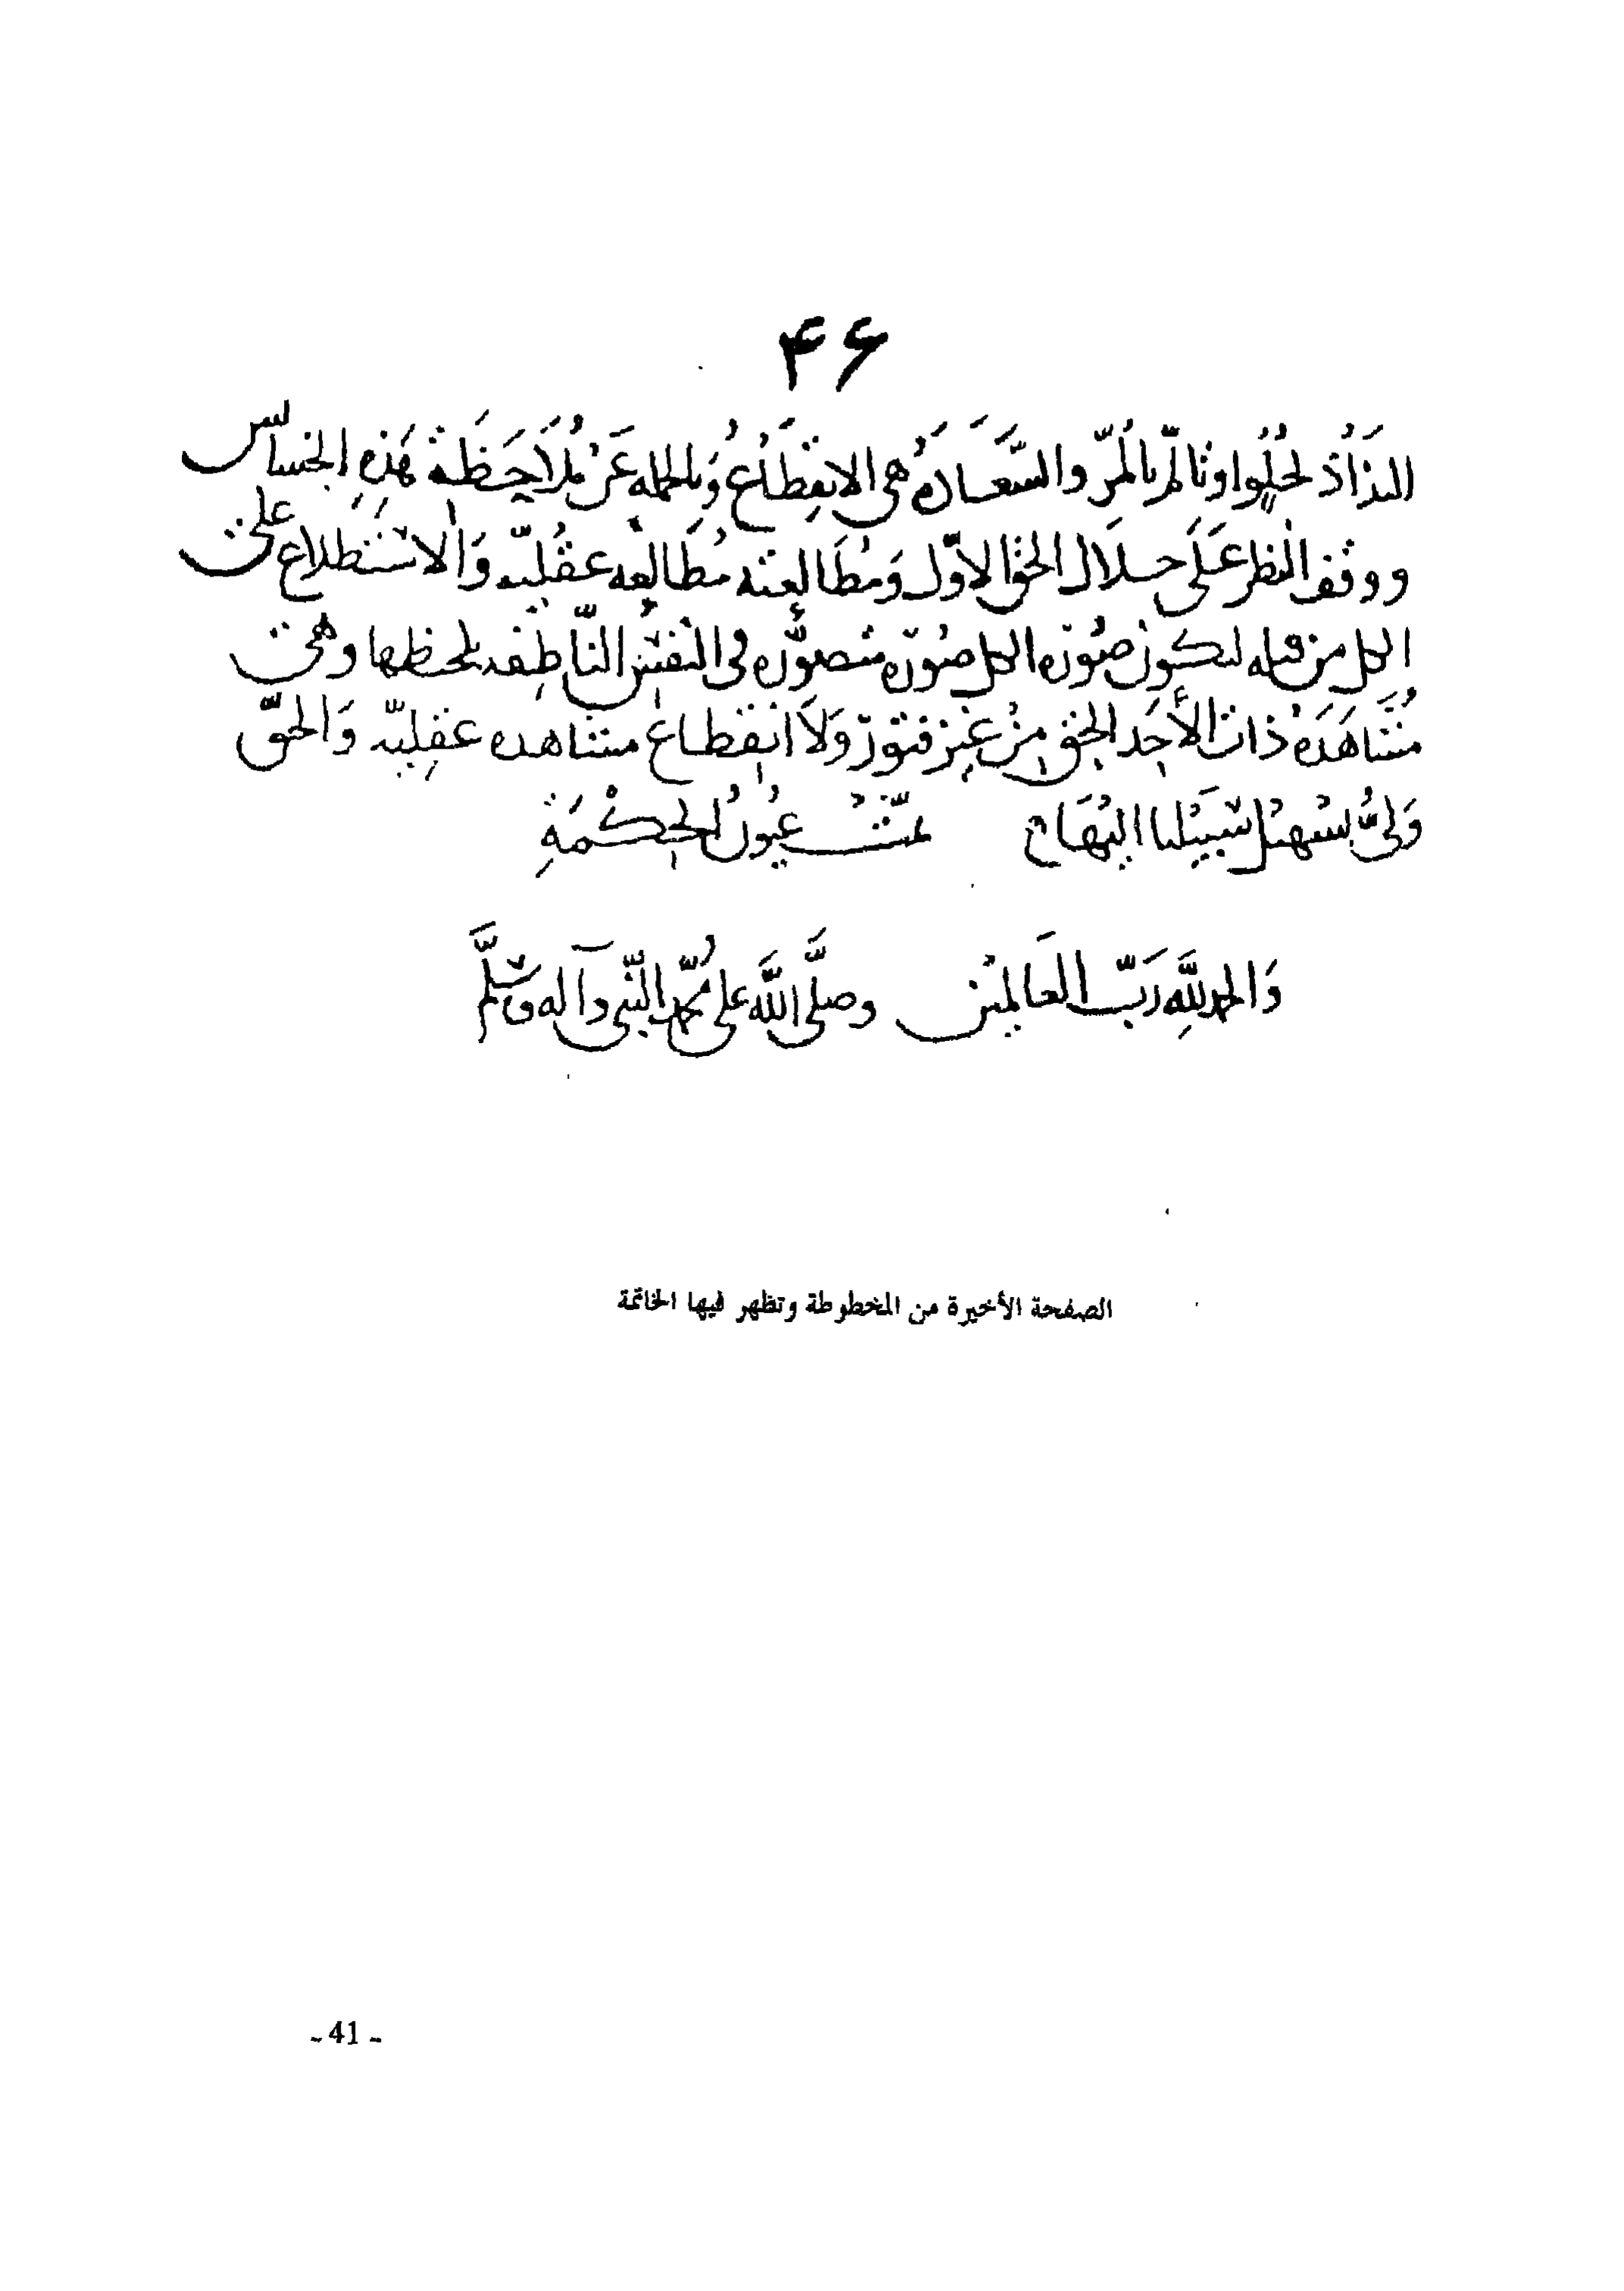 ۴۶
التذاذ لحلوا وتالم بالمرّ والسَّعَادَةُ هى الانقِطَاعُ وَبالجمله عَنْ مُلَاحَظَة هَذِهِ الخسائس
ووقف النظر عَلَى جلَال الحق الاوّل وَمُطَالعته مُطَالعه عقليّه وَالاستطلاع على
الكل من قبله لتكون صُوَرَه الكل صُوَرَه متصوَّره فى النفس النّاطِقه يلحظها وهى
مُشَاهَدَهُ ذات الأَحَد الحق مِنْ غير فتور وَلَا انقطاع مشاهده عقلِيّه وَالحقّ
وَلىُّ تسهيل سَبيلنا اليْهَا تمّتْ عيُونُ الحِكْمَةِ
وَالحمد للَّهِ رَبّ العَالمين وصلَّى اللَّه على مُحمّد النّبى وآله وسَلَّم
الصفحة الأخيرة من المخطوطة وتظهر فيها الخاتمة
- 41 -